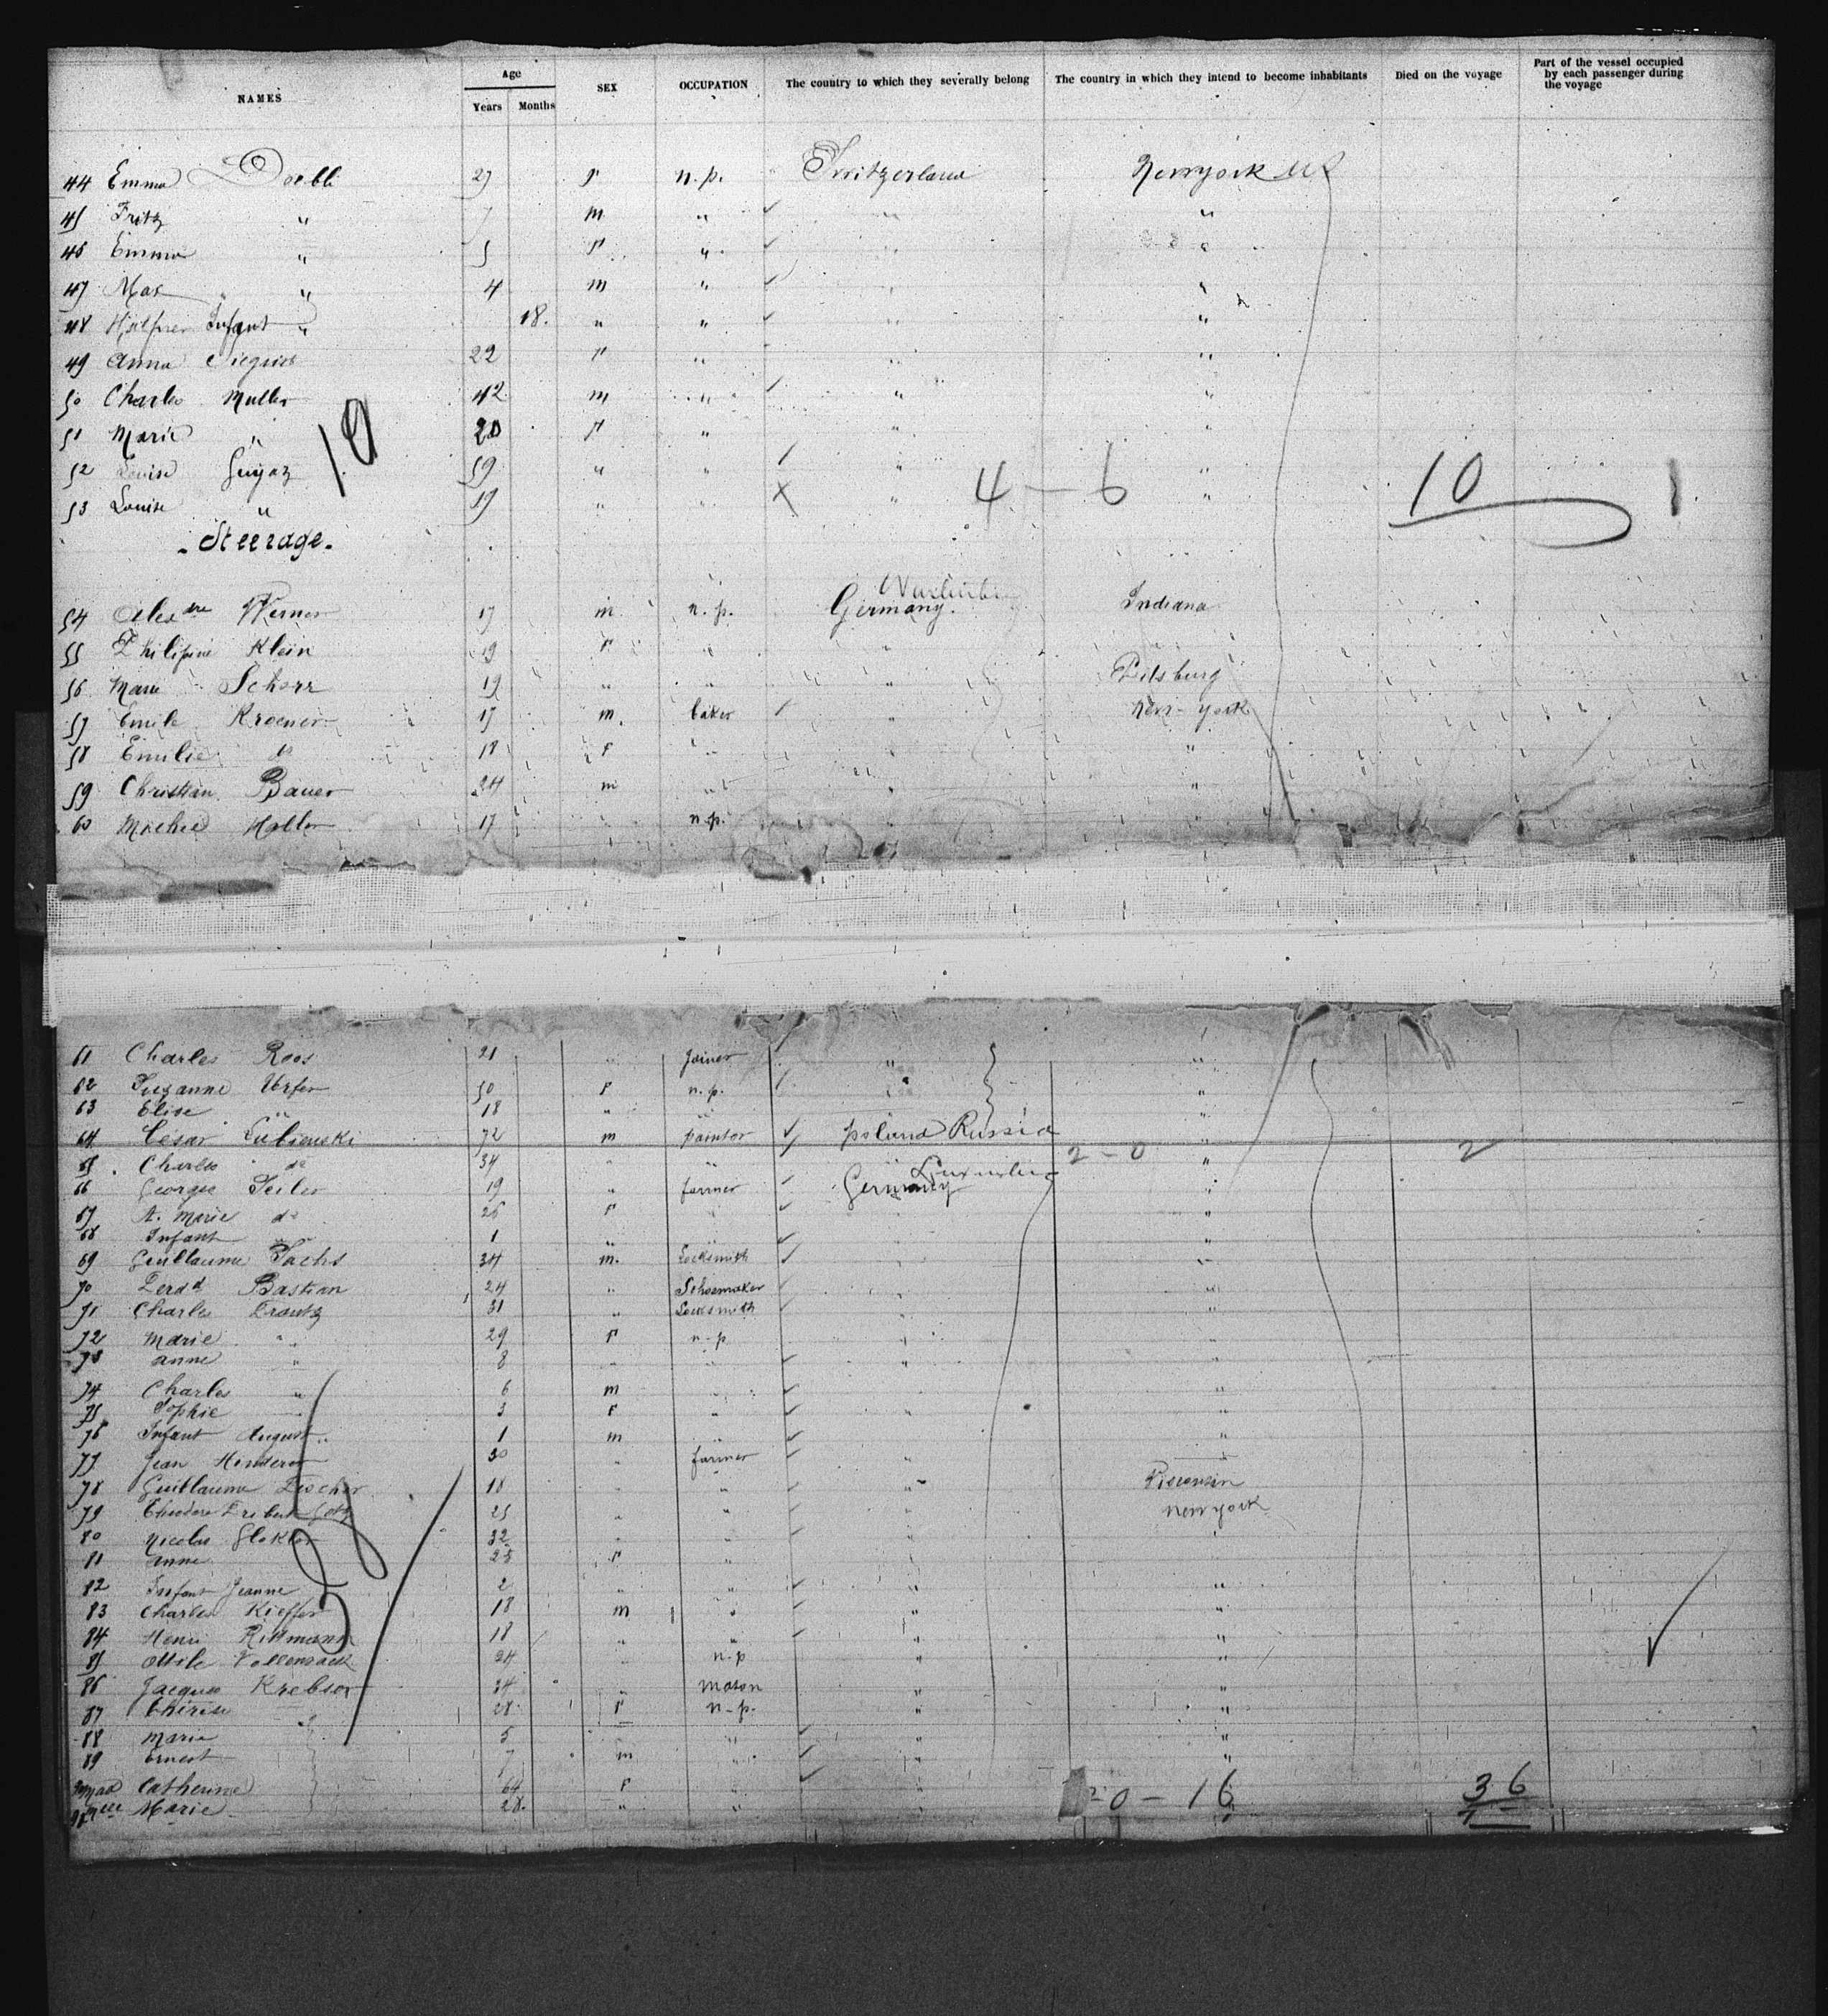 NAMES Age Years Months SEX OCCUPATION The country to which they severally belong The country in which they intend to become inhabitants Died on the voyage Part of the vessel occupied by each passenger during the voyage
44 Emma Doebli 27 F n.p. Switzerland Newyork US
45 Fritz " 7 m " " "
46 Emma " 5 F " " "
47 Max " 4 m " " "
48 Infant " 18. " " " "
49 Anna 22 F " " "
50 Charles Muller 42 m " " "
51 Marie " 20 F " " "
19
52 Louise Guyaz 59 " " " "
53 Louise " 19 " " X " 4 - 6 " 10 1
Steerage.
54 Alexdre Werner 17 m n.p. Germany. Indiana
55 Philipine Klein 19 F " "
56 Marie Scherr 19 " " " Pitsburg
57 Emile Kroener 17 m. baker " New-york
58 Emilie do 18 F " " "
59 Christian Bauer 24 m " " "
60 Haller 17 n.p. " "
61 Charles Roos 21 " joiner " "
62 Suzanne Urfer 50 F n.p. " "
63 Elise " 18 " " "
64 César Lubienski 72 m painter Poland Russia
65 Charles do 34 " " " 2 - 0 " 2
66 Georges Seiler 19 " farmer Germany "
67 A. Marie do 26 F " "
68 Infant " 1 " " "
69 Guillaume Sachs 34 m. Locksmith " "
70 Ferdd Bastian 24 " Schoemaker "
71 Charles Trautz 31 " Locksmith "
72 Marie " 29 F n-p " "
73 Anne " 8 " " " "
74 Charles " 6 m " "
75 Sophie " 3 F " "
76 Infant August " 1 m " "
77 Jean 30 " farmer "
78 Guillaume Fischer 18 " " " Wisconsin
79 Theodore 25 " " New york
80 Nicolas Glokler 32 " " "
81 Anne 25 F "
82 Infant Jeanne 2 " " " "
83 Charles Kieffer 18 m " " "
84 Henri Rittmann 18 " " " "
85 24 " n-p " "
86 Jacques Krebser 34 " mason " "
87 Thérèse 28 F n-p. "
88 Marie 5 " " "
89 Ernest 7 m " " "
Catherine 64 F "
Marie 28. " " " 0 - 16 36